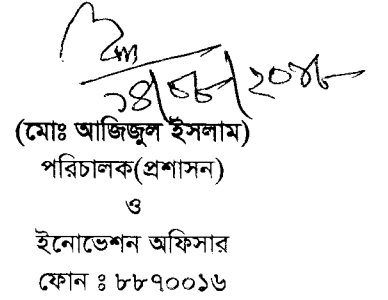 (মোঃ আজিজুল ইসলাম)
পরিচালক(প্রশাসন)
ও
ইনোভেশন অফিসার
ফোন ঃ ৮৮৭০০১৬